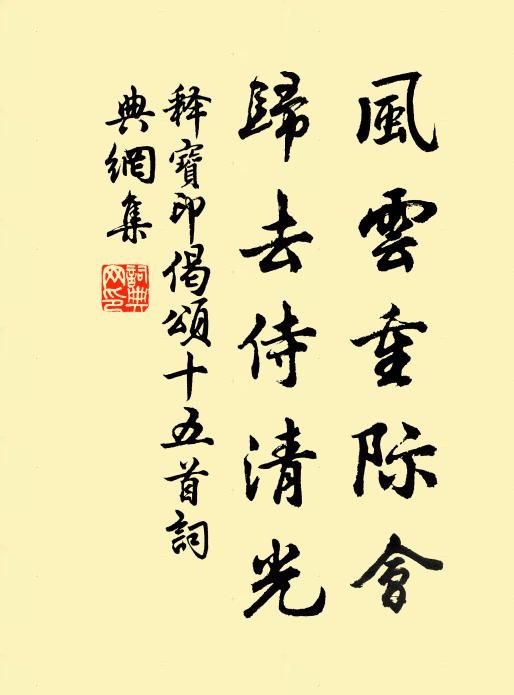 風雲重际會
歸去侍清光
释寶印偈頌十五首詞
典網集
詞典
网印